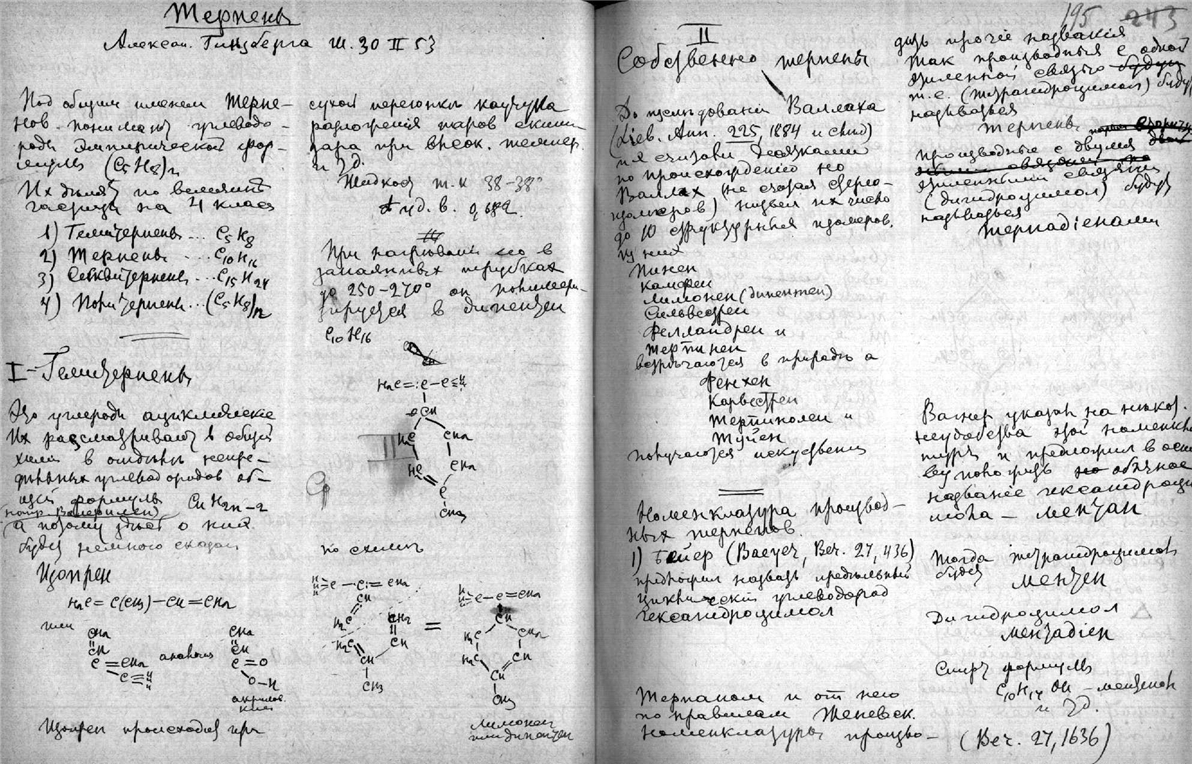 Терпены
Алексан. Гинзберга Ж. 30 II 53
Под общим именем Терпе-
нов понимают углеводо-
роды эмпирической фор-
мулы (C5H8)n
Их делят по величине
частицы на 4 класса
1) Гемитерпены ... C5H8
2) Терпены ... C10H16
3) Сесквитерпены ... C15H24
4) Политерпены ... (C5H8)n
I - Гемитерпены
Это углероды ациклические
Их рассматривают в общей
химии в отделе непре-
дельных углеродов об-
щей формулы CnH2n-2
а потому здесь о них
будет немного сказано
Изопрен
H2C = C(CH3) - CH = CH2
или
CH2
CH
C = CH2
аналогия
CH2
CH
C = O
O - H
акрилов.
Изопрен происходит при
сухой перегонке каучука
разложения паров скипи-
дара при высок. темпер
и т.д.
Жидкость т. к 38-38°
уд. в. 0,682
При нагревании его в
запаянных трубках
до 250-270° он полимери-
зируется в дипентен
C10H16
CH
HC
CH2
CH2
HC
C
CH3
по схеме
CH
H2C
CH2
H2C
CH
CH
CH3
=
CH
H2C
CH2
H2C
CH
C
CH3
Лимонен
или дипентен
195 243
II
Собственно терпены
До исследований Валлаха
(Лieб. Анн. 225, 1884 и след)
их считали десятками
по происхождению но
Валлах (не считая стерео-
изомеров) нашел их число
до 10 структурных изомеров.
из них
Пинен
Камфен
Лимонен (дипентен)
Сильвестрен
Фелландрен и
Терпинен
встречаются в природе а
Фенхен
Карвестрен
Терпинолен и
Туйен
получаются искусственно
Номенклатура производ-
ных терпенов.
1) Бейер (Baeyer, Ber. 27, 436)
предложил назвать предельный
циклический углеводород
гексагидроцимол
Терпаном и от него
по правилам Женевск.
номенклатуры произво-
дить прочие названия
Так производныя с одной
этиленной связью
т.е. (тетрагидроцимол) будут
называться
Терпены
производные с двумя
этиленными связями
(дигидроцимол) будут
называться
Терпадиенами
Вагнер указал на некот.
неудобства этой номенкла-
туры и предложил в осно-
ву положить обычное
название гексагидроци-
мола - ментан
Тогда тетрагидроцимол
будет
ментен
Дигидроцимол
ментадиен
Спирт формулы
C10H17 OH - ментенол
и т.д.
(Ber. 27, 1636)